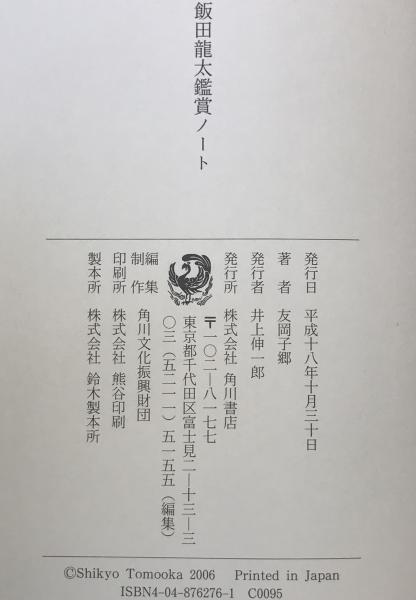 飯田龍太鑑賞ノート
発行日 平成十八年十月三十日
著者 友岡子郷
発行者 井上伸一郎
発行所 株式会社 角川書店
〒一〇二―八一七七
東京都千代田区富士見二―十三―三
〇三(五二一一)五一五五(編集)
編集
制作 角川文化振興財団
印刷所 株式会社 熊谷印刷
製本所 株式会社 鈴木製本所
©Shikyo Tomooka 2006 Printed in Japan
ISBN4-04-876276-1 C0095